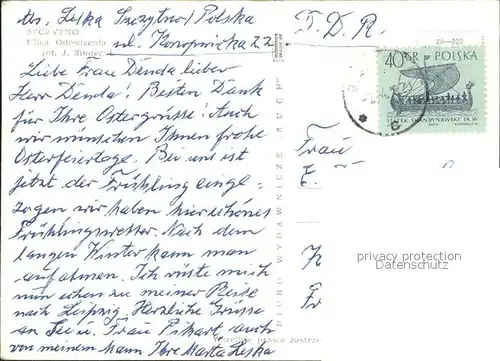 Abs. Leska Szczytno/Polska
ul. Konopnicka 22
D. D. R.
SZCZYTNO
Ulica Odrodzenia
fot. J.
Liebe Frau Denda lieber
Herr Denda! Besten Dank
für Ihre Ostergrüsse! Auch
wir wünschen Ihnen frohe
Osterfeiertage. Bei uns ist
jetzt der Frühling einge-
zogen wir haben hier schönes
Frühlingswetter. Nach dem
langen Winter kann man
aufatmen. Ich rüste mich
nun schon zu meiner Reise
nach Leipzig. Herzliche Grüsse
an Sie u. Frau Pikart, auch
von meinem Mann Ihre Marta Leska
BIURO WYDAWNICZE "RUCH"
Wszelkie prawa zastrze
40 GR POLSKA
STATEK SKANDYNAWSKI IX W.
Frau
E.
Fr
privacy protection
Datenschutz